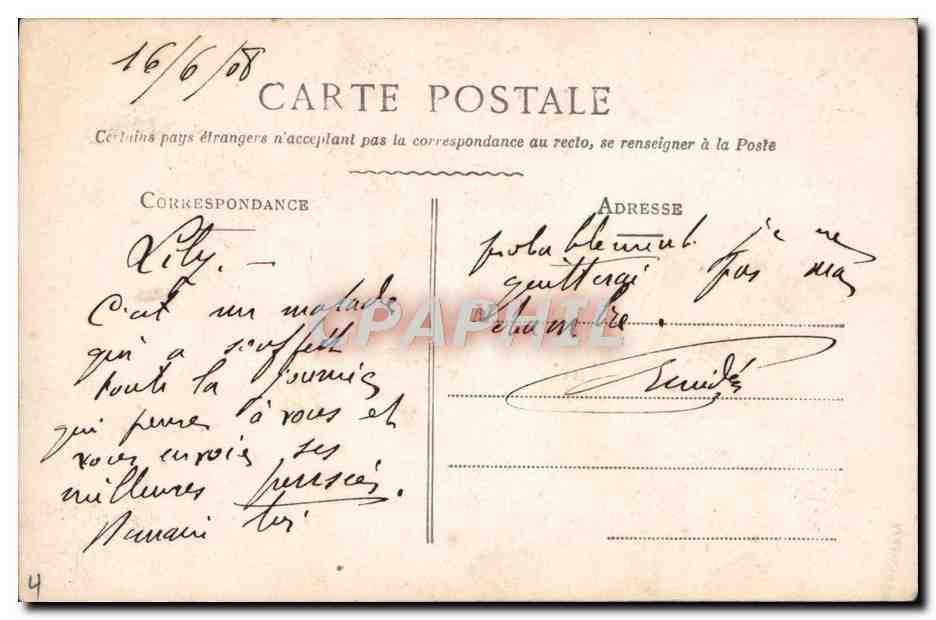 16/6/08
CARTE POSTALE
Certains pays étrangers n'acceptent pas la correspondance au recto, se renseigner à la Poste
CORRESPONDANCE
Lily. —
C'est un malade
qui a souffert
toute la journée
qui pense à vous et
vous envoie ses
meilleures pensées.
ADRESSE
probablement je ne
quitterai pas ma
chambre.
CPAPHIL
4